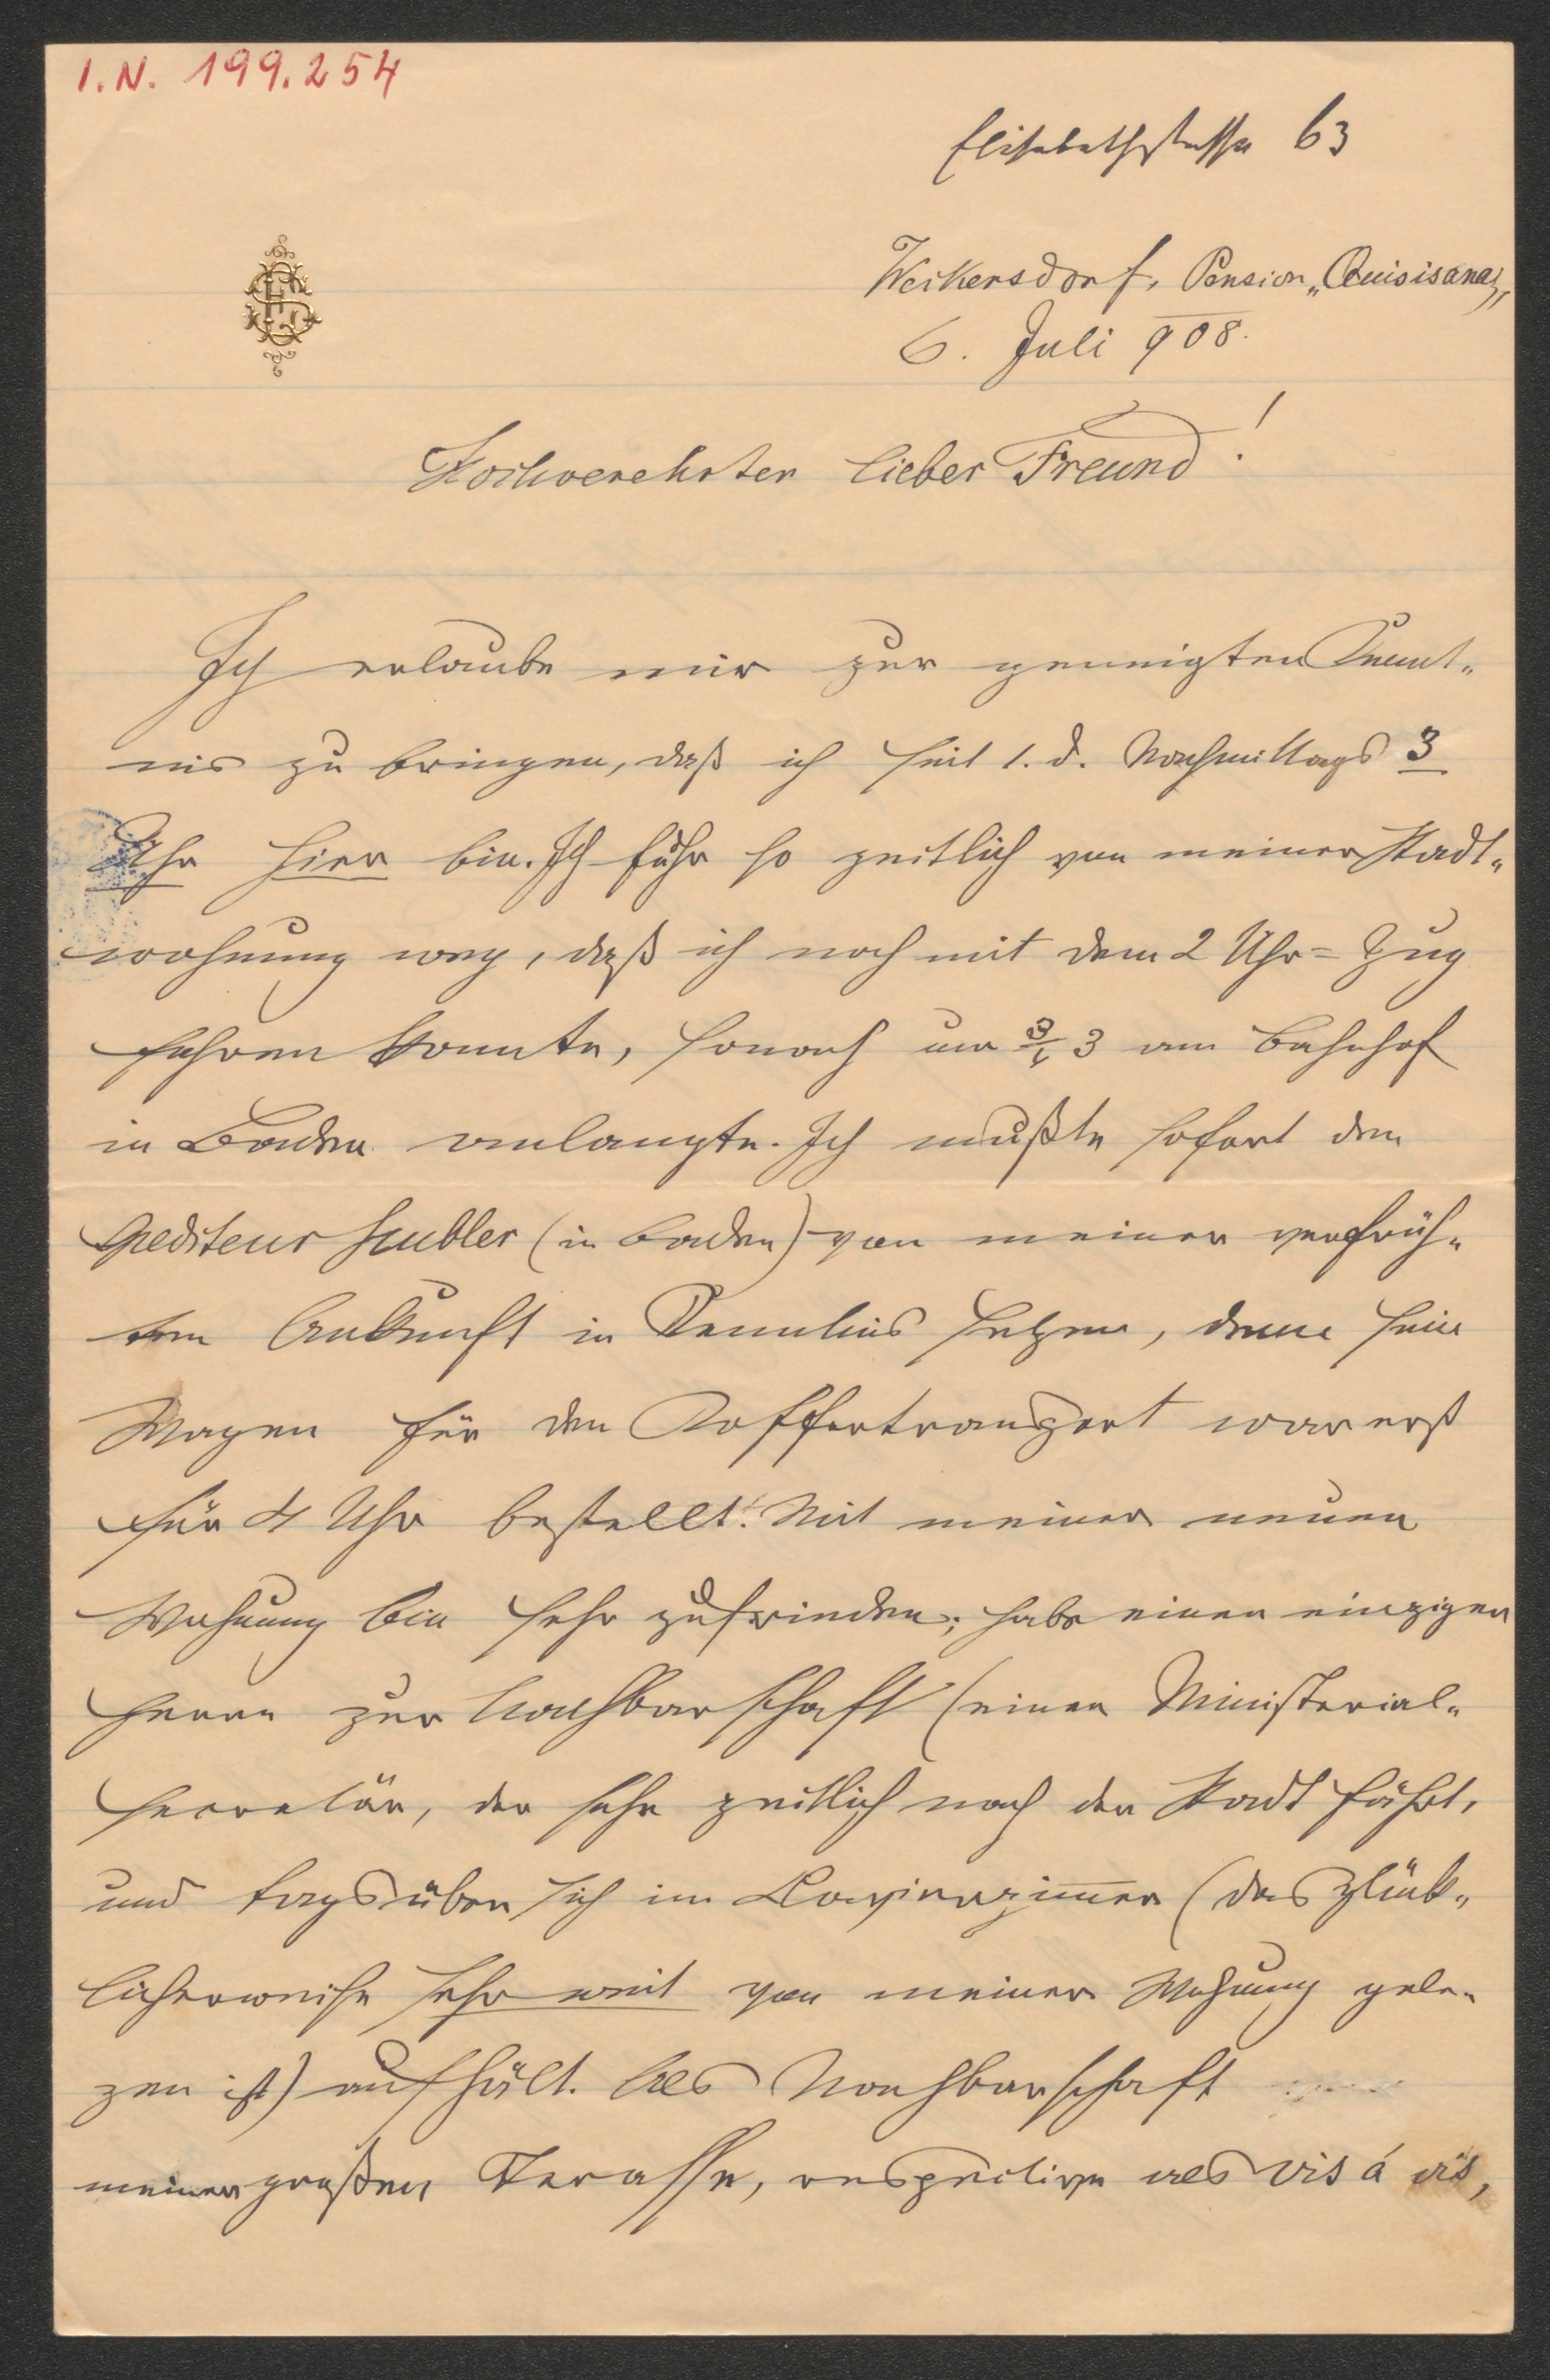 I.N. 199.254
Elisabethstrasse 63
Weikersdorf, Pension „Quisisana"
6. Juli 908.
Hochverehrter lieber Freund!
Ich erlaube mir zur geneigten Kennt-
nis zu bringen, daß ich seit 1. d. Nachmittags 3
Uhr hier bin. Ich fuhr so zeitlich von meiner Stadt-
wohnung weg, daß ich noch mit dem 2 Uhr-Zug
fahren konnte, sonach um ¾ 3 am Bahnhof
in Baden anlangte. Ich mußte sofort den
Spediteur (in Baden) von meiner verfrüh-
ten Ankunft in Kenntnis setzen, denn sein
Wagen für den Koffertransport war erst
für 4 Uhr bestellt. Mit meiner neuen
Wohnung bin sehr zufrieden; habe einen einzigen
Herrn zur Nachbarschaft (einen Ministerial-
secretär, der sehr zeitlich nach der Stadt fährt,
und tagsüber sich im Clavierzimmer (das glück-
licherweise sehr weit von meiner Wohnung gele-
gen ist) aufhält. Als Nachbarschaft
meiner großen Terasse, respective als vis á vis,